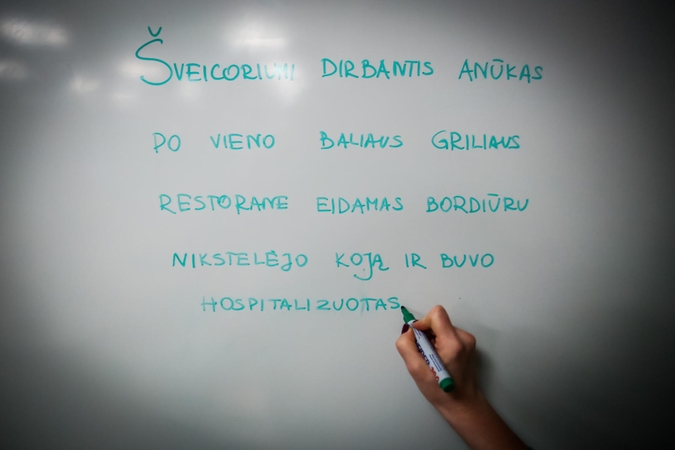 Šveicoriumi DIRBANTIS ANŪKAS
PO VIENO BALIAUS GRILIAUS
RESTORANE EIDAMAS BORDIŪRU
NIKSTELĖJO KOJĄ IR BUVO
HOSPITALIZUOTAS